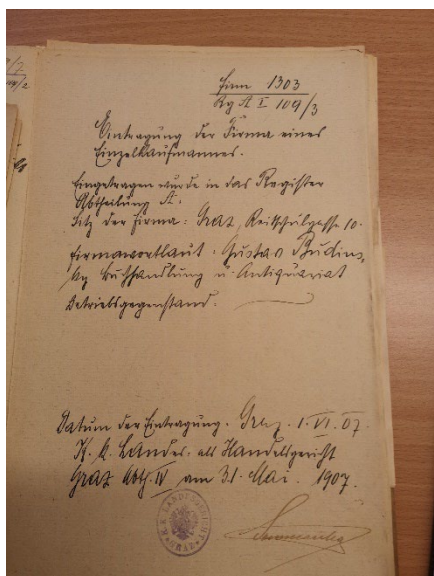 Firm 1303
Rg A I 109/3
Eintragung der Firma eines
Einzelkaufmannes.
Eingetragen wurde in das Register
Abtheilung A.
Sitz der Firma: Graz, Reitschulgasse 10.
Firmawortlaut: Gustav Budins-
ky Buchhandlung u. Antiquariat
Betriebsgegenstand:
Datum der Eintragung. Graz. 1. VI. 07.
K. k. Landes- als Handelsgericht
Graz Abth. IV am 31. Mai. 1907.
K.K. LANDESGERICHT